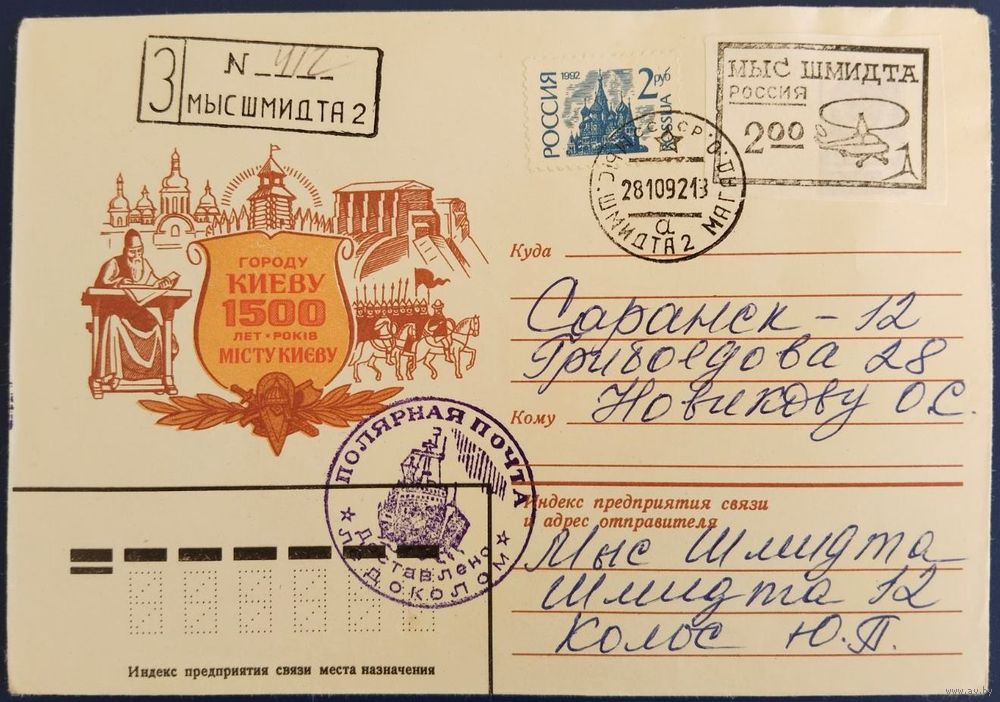 З N 412
МЫС ШМИДТА 2
РОССИЯ 1992 2 руб ROSSIJA
МЫС ШМИДТА
РОССИЯ
2 00
28109213
а
ШМИДТА 2 МАГАД
ГОРОДУ
КИЕВУ
1500
ЛЕТ • РОКІВ
МІСТУ КИЄВУ
Куда
Саранск - 12
Грибоедова 28
Новикову О.С.
Кому
ПОЛЯРНАЯ ПОЧТА
Доставлено
ЛЕДОКОЛОМ
Индекс предприятия связи
и адрес отправителя
Мыс Шмидта
Шмидта 12
Колос Ю.П.
Индекс предприятия связи места назначения
www.ay.by